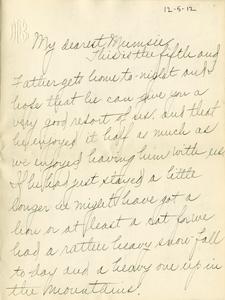 12-5-12
My dearest Mumsie,
This is the fifth and
Father gets home to-night and I
hope that he can give you a
very good resort of us, and that
he enjoyed it half as much as
we enjoyed having him with us.
If he had just stayed a little
longer he might have got a
lion or at least a cat for we
had a rather heavy snow fall
to day and a heavy one up in
the mountains.